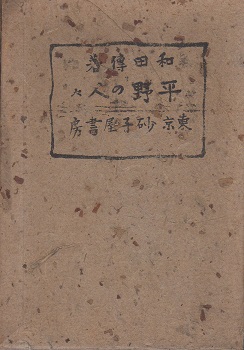 和田傳著
平野の人々
東京砂子屋書房